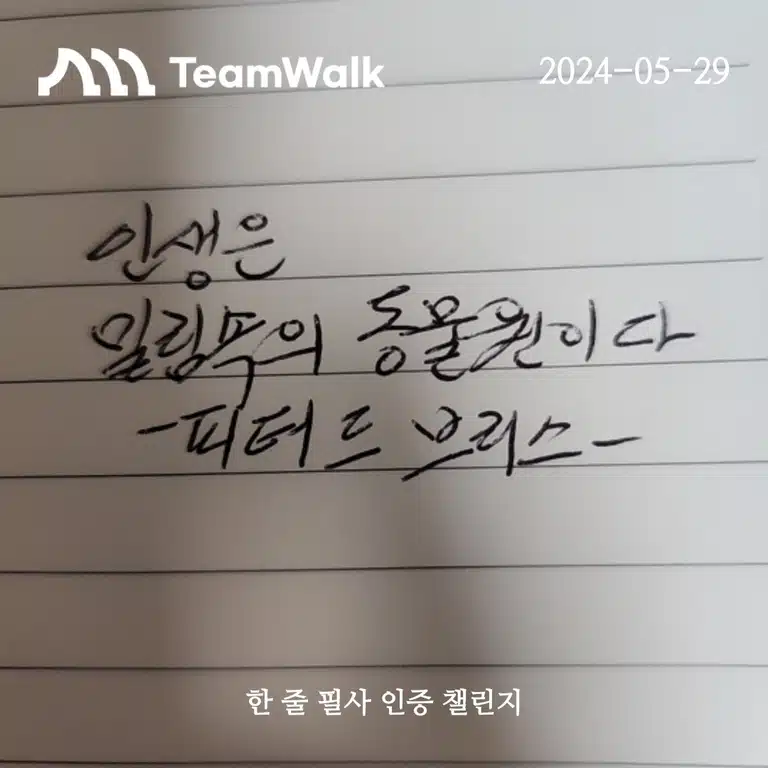 TeamWalk
2024-05-29
인생은
밀림푹의 동물원이다
-피터 드 브리스-
한 줄 필사 인증 챌린지